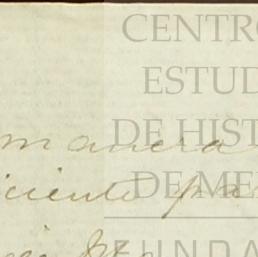 CENTRO
ESTUD
DE HIST
manera
DE ME
ciente pa
FUNDA